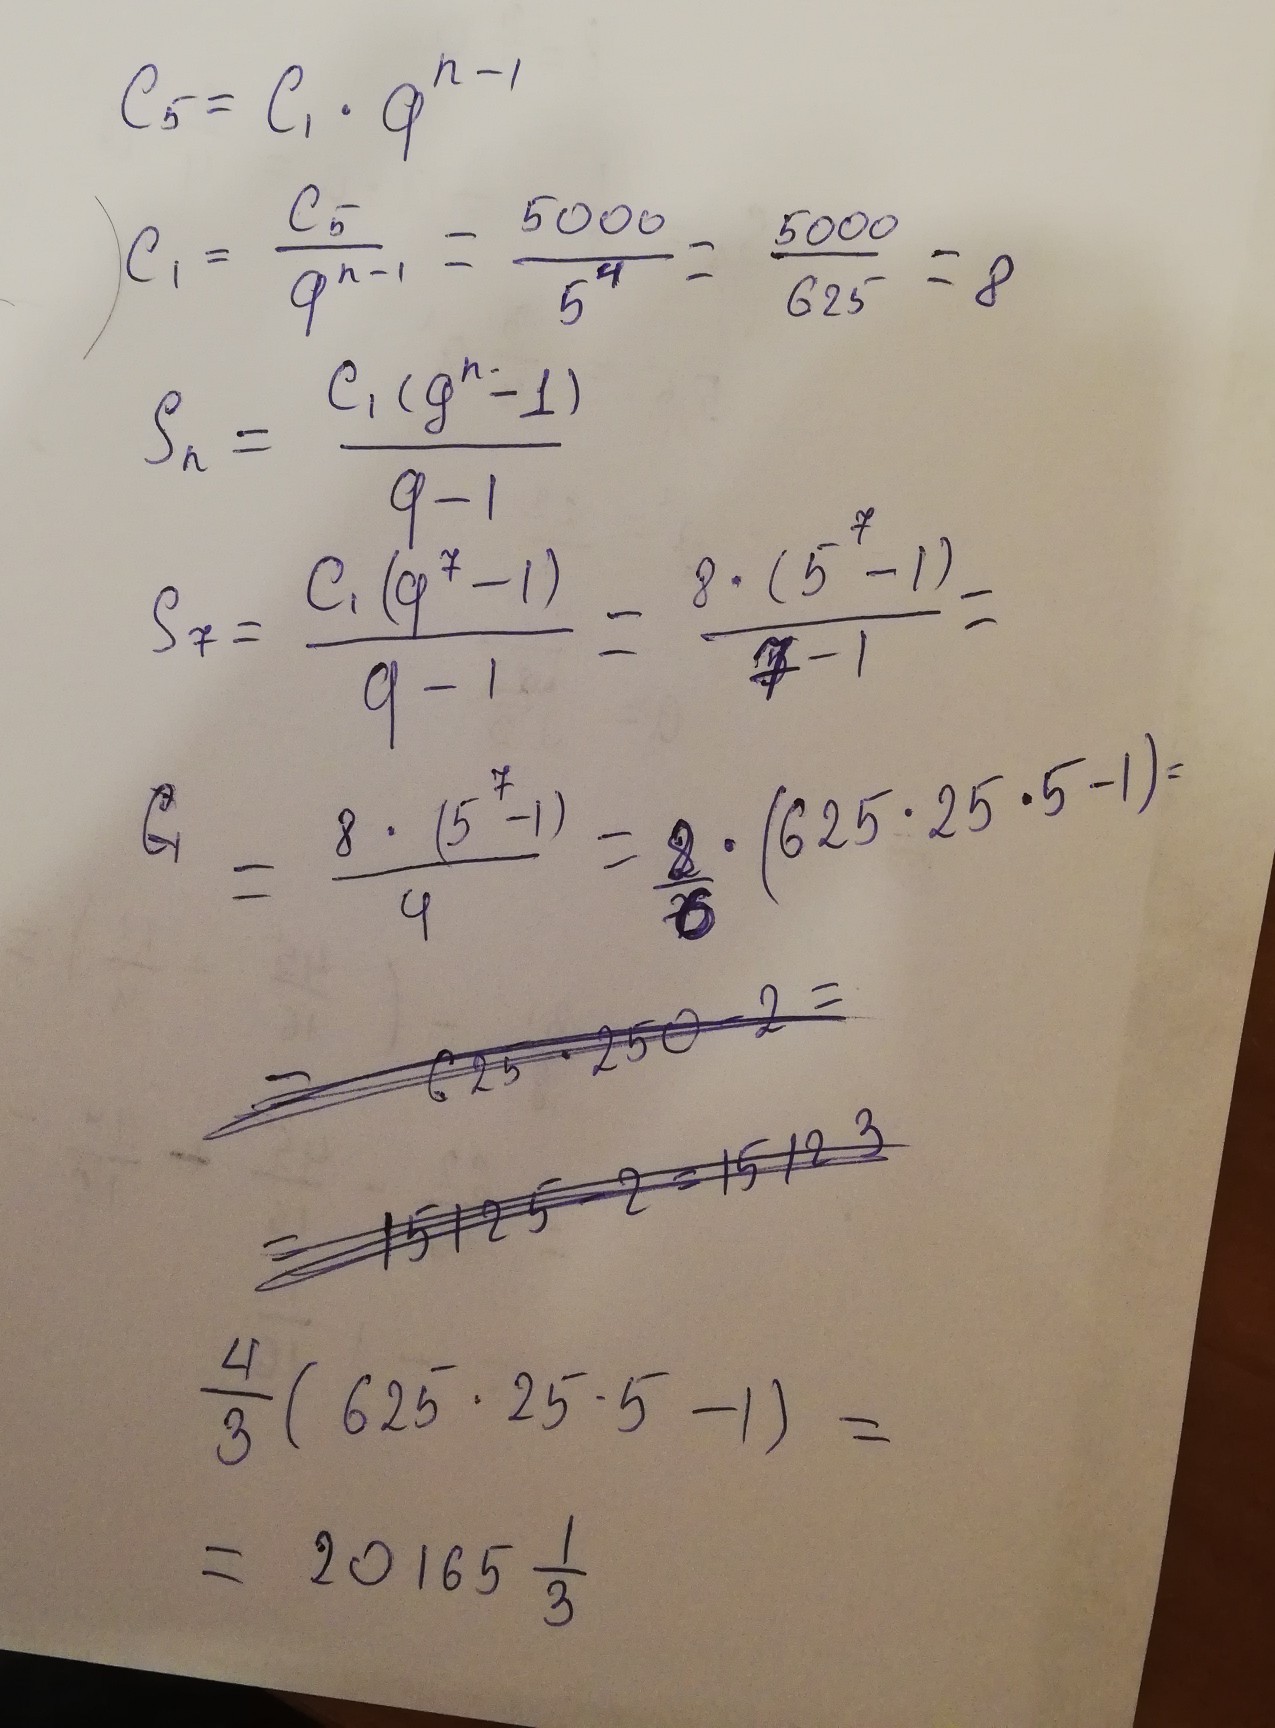 C₅ = C₁ · q^(n-1)
C₁ = C₅/q^(n-1) = 5000/5⁴ = 5000/625 = 8
Sₙ = C₁(qⁿ-1)/(q-1)
S₇ = C₁(q⁷-1)/(q-1) = 8·(5⁷-1)/(7-1) =
= 8·(5⁷-1)/4 = 8/6 · (625·25·5-1) =
= 625·250-2 =
= 15125-2 = 15123
4/3(625·25·5-1) =
= 20165 1/3